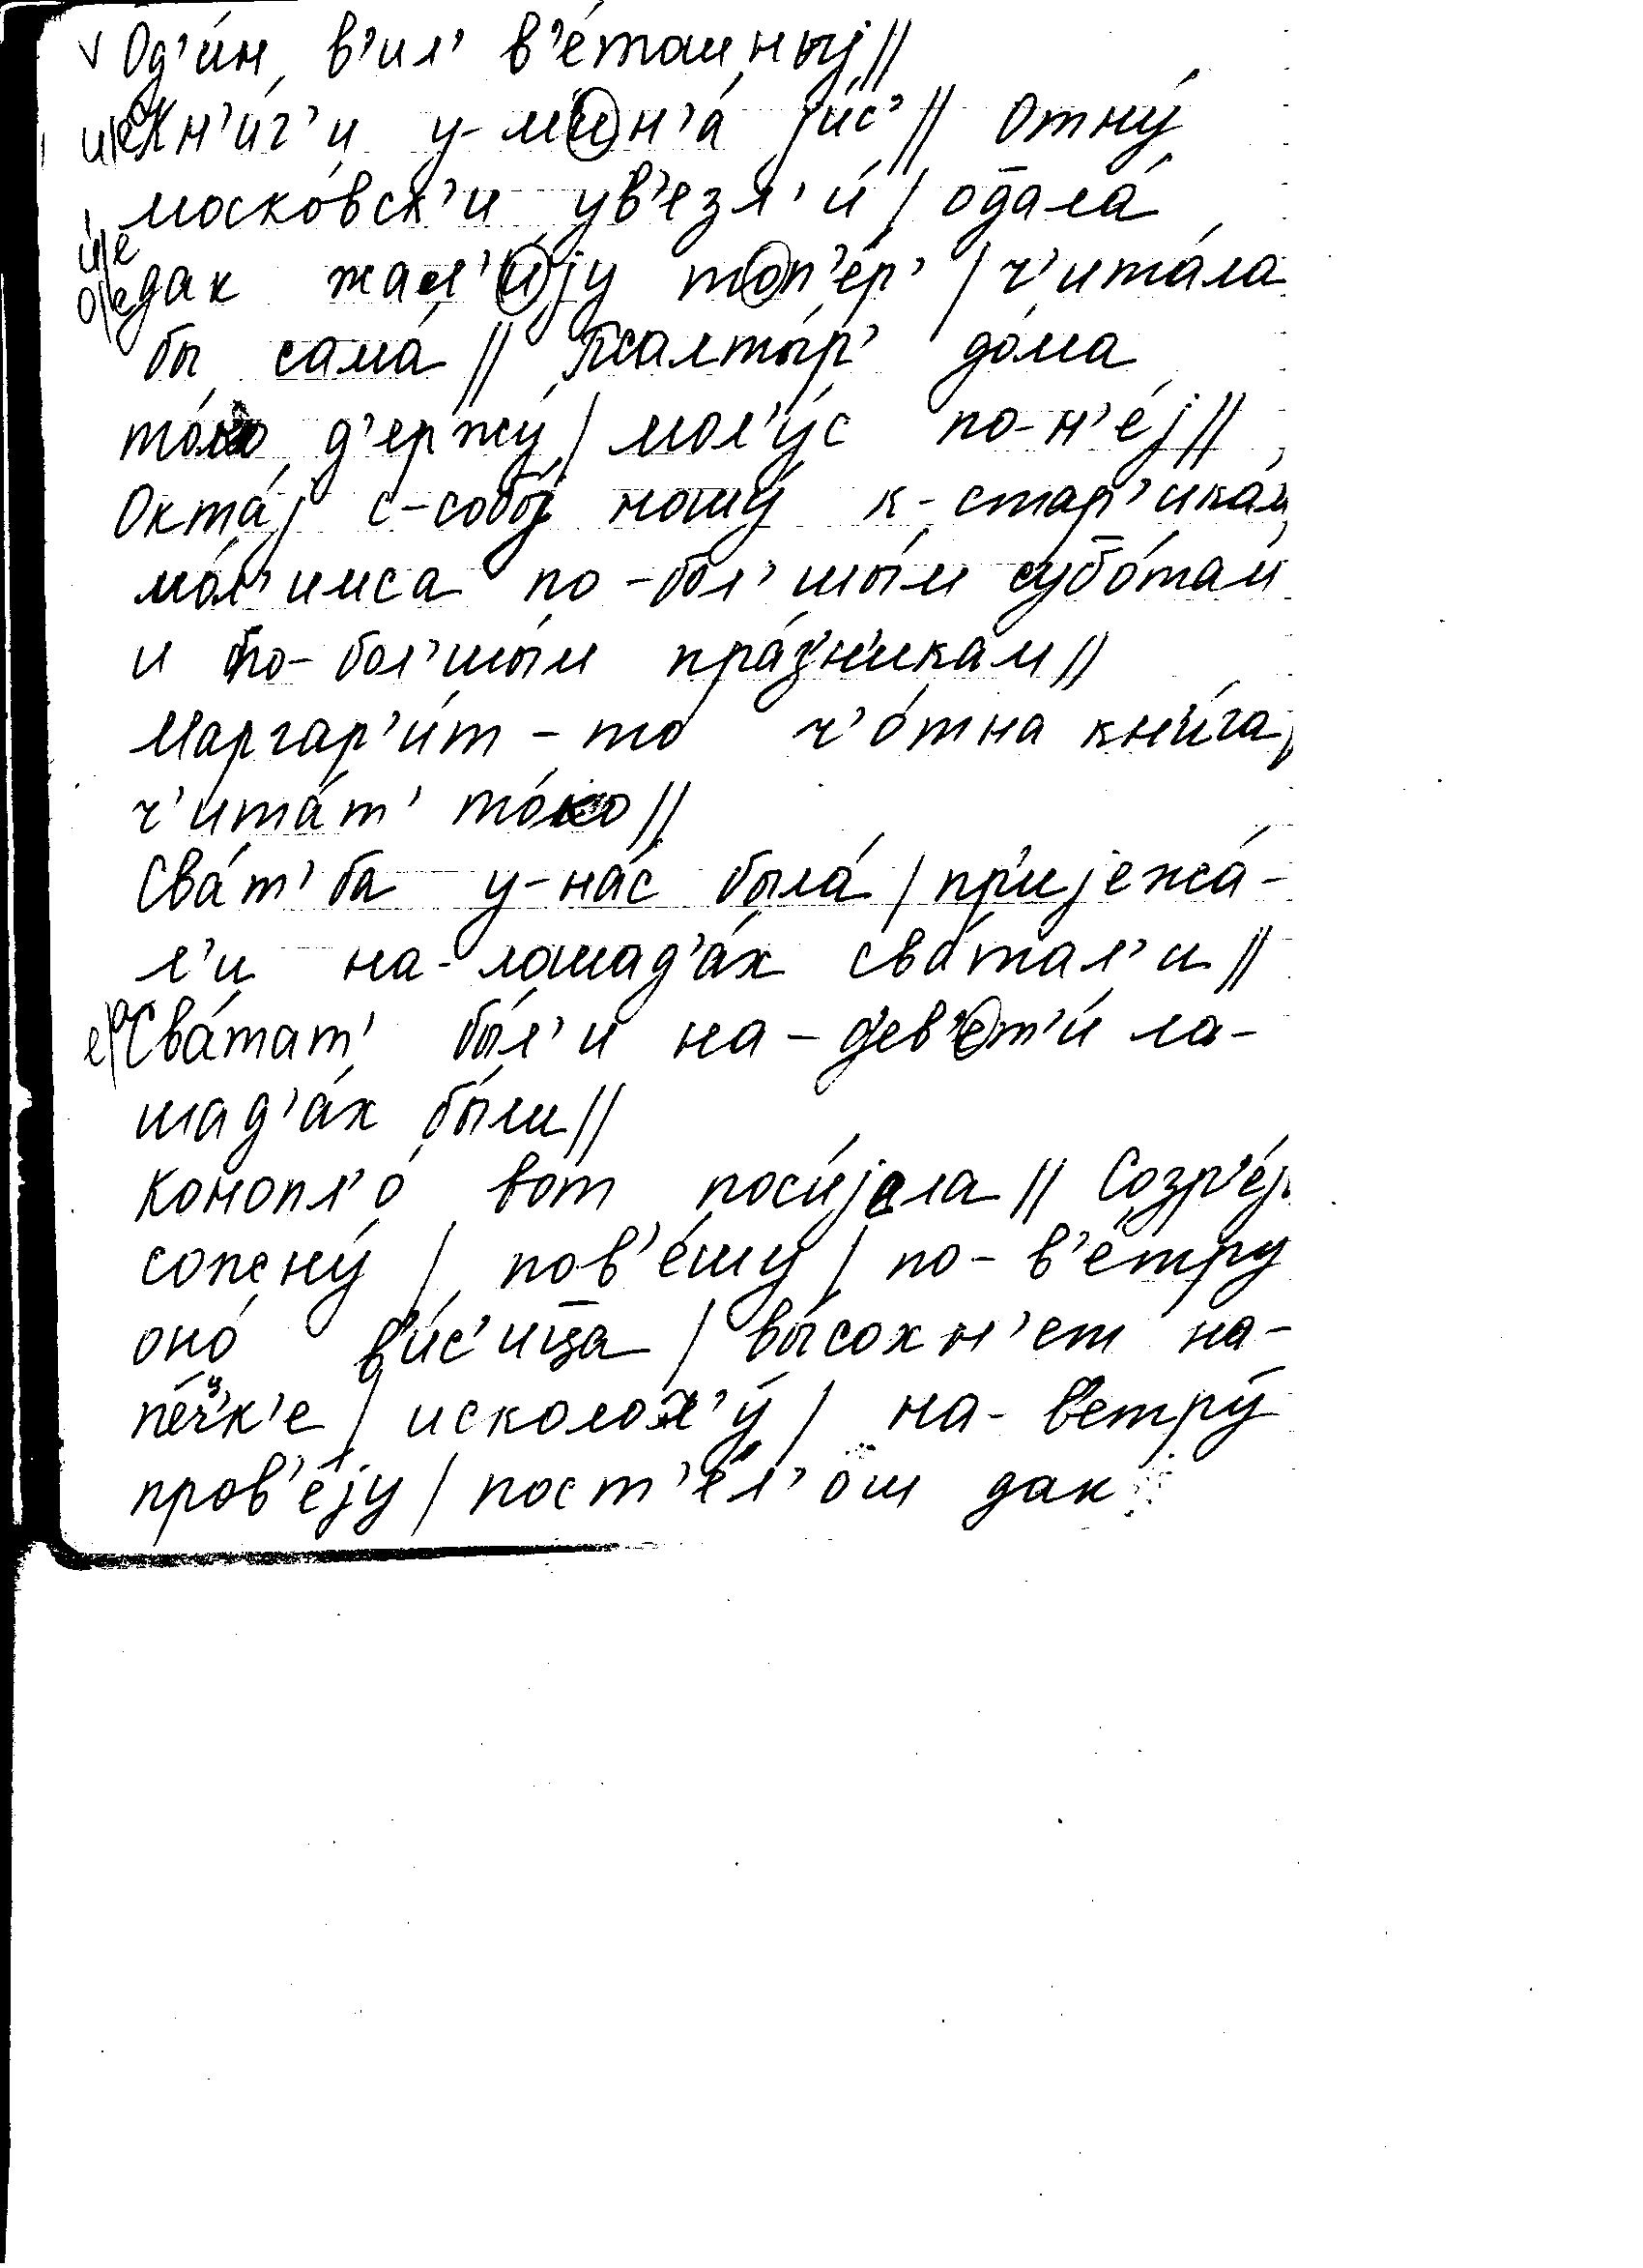 √ Од'и́н в'ил' в'е́тошныј //
и/е Кн'и́г'и у-м'ин'а́ јис' // отну́
моско́вск'и ув'езл'и́ / од̄ала́
и́/е о/е дак жал'и́ју топ'е́р' / ч'ита́ла
бы сама́ // Псалты́р' до́ма
то́ко д'ержу́ / мол'у́с по-н'е́ј //
Окта́ј с-собо́ј ношу́ к-стар'ика́м,
мо́л'имса по-бол'шы́м суб̄о́там
и по-бол'шы́м пра́з'н'икам //
Маргар'и́т-то ч'о́тна кн'и́га,
ч'ита́т' то́ко //
Сва́т'ба у-на́с была́ / пр'ијежа́-
л'и на-лошад'а́х сва́тал'и //
е/а Сва́тат' бы́л'и на-д'ев'ет'и́ ла-
шад'а́х бы́ли //
Конопл'о́ вот поси́јала // Созр'е́ј
сожну́ / пов'е́шу / по-в'е́тру
оно́ в'и́с'иц̄а / вы́сохн'ет на-
пе́ч'к'е / исколоч'у́ / на-в'етру́
пров'е́ју / пост'е́л'ош дак